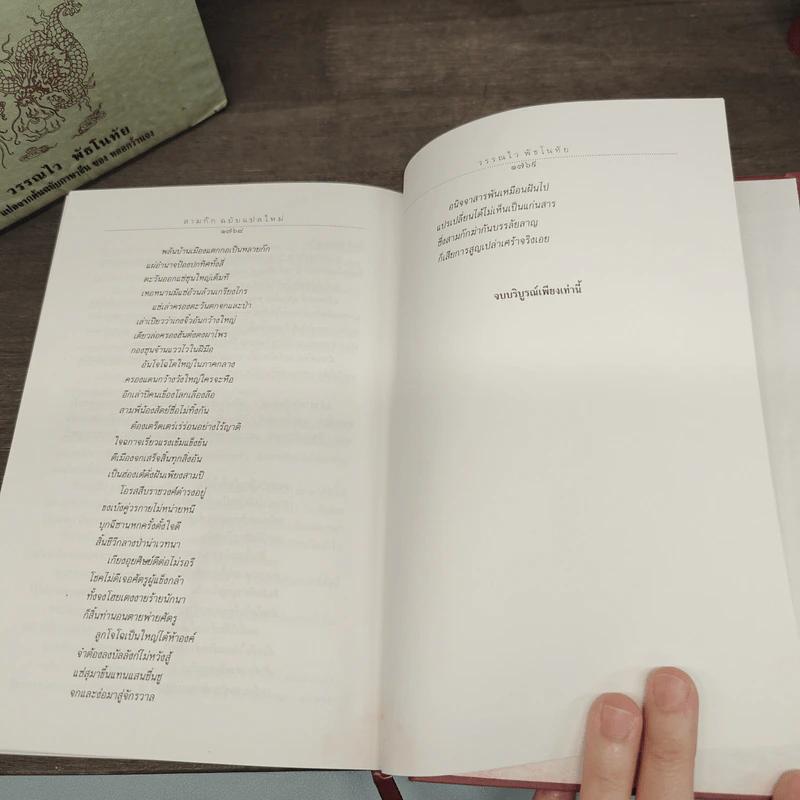 วรรณไว พัธโนทัย
แปลจากต้นฉบับภาษาจีน ของ หลอกว้านจง
สามก๊ก ฉบับแปลใหม่
๑๗๖๘
พลันบ้านเมืองแตกกอเป็นหลายก๊ก
แผ่อำนาจป้องปกทิศทั้งสี่
ตะวันออกแซ่ซุนใหญ่เต็มที
เหอหนานมีแซ่อ้วนล้วนเกรียงไกร
แซ่เล่าครองตะวันตกจกและป่า
เล่าเปียวว่าเกงจิ๋วอันกว้างใหญ่
เตียวล่อครองฮันต๋งดงผาไพร
กองซุนจ้านแววไวในฝีมือ
อันโจโฉโตใหญ่ในภาคกลาง
ครองแดนกว้างวังใหญ่ใครจะหือ
อีกเล่าปี่คนเขื่องโลกเลื่องลือ
สามพี่น้องสัตย์ซื่อไม่ทิ้งกัน
ต้องเตร็ดเตร่เร่ร่อนอย่างไร้ญาติ
ใจฉกาจเรี่ยวแรงเข้มแข็งขัน
ตีเมืองจกเสร็จสิ้นทุกสิ่งอัน
เป็นฮ่องเต้ดั่งฝันเพียงสามปี
โอรสสืบราชวงศ์ดำรงอยู่
ขงเบ้งคู่วรกายไม่หน่ายหนี
บุกฉีซานหกครั้งตั้งใจดี
สิ้นชีวีกลางป่าน่าเวทนา
เกียงอุยศิษย์ดีต่อไม่รอรี
โชคไม่ดีเจอศัตรูผู้แข็งกล้า
ทั้งจงโฮยเตงงายร้ายนักนา
ก็สิ้นท่านอนตายพ่ายศัตรู
ลูกโจโฉเป็นใหญ่ได้ห้าองค์
จำต้องลงบัลลังก์ไม่หวังสู้
แซ่สุมาขึ้นแทนแสนชื่นชู
จกและง่อมาสู่จักรวาล
วรรณไว พัธโนทัย
๑๗๖๙
อนิจจาสารพันเหมือนฝันไป
แปรเปลี่ยนได้ไม่เห็นเป็นแก่นสาร
ซึ่งสามก๊กฆ่ากันบรรลัยลาญ
ก็เสียการสูญเปล่าเศร้าจริงเอย
จบบริบูรณ์เพียงเท่านี้